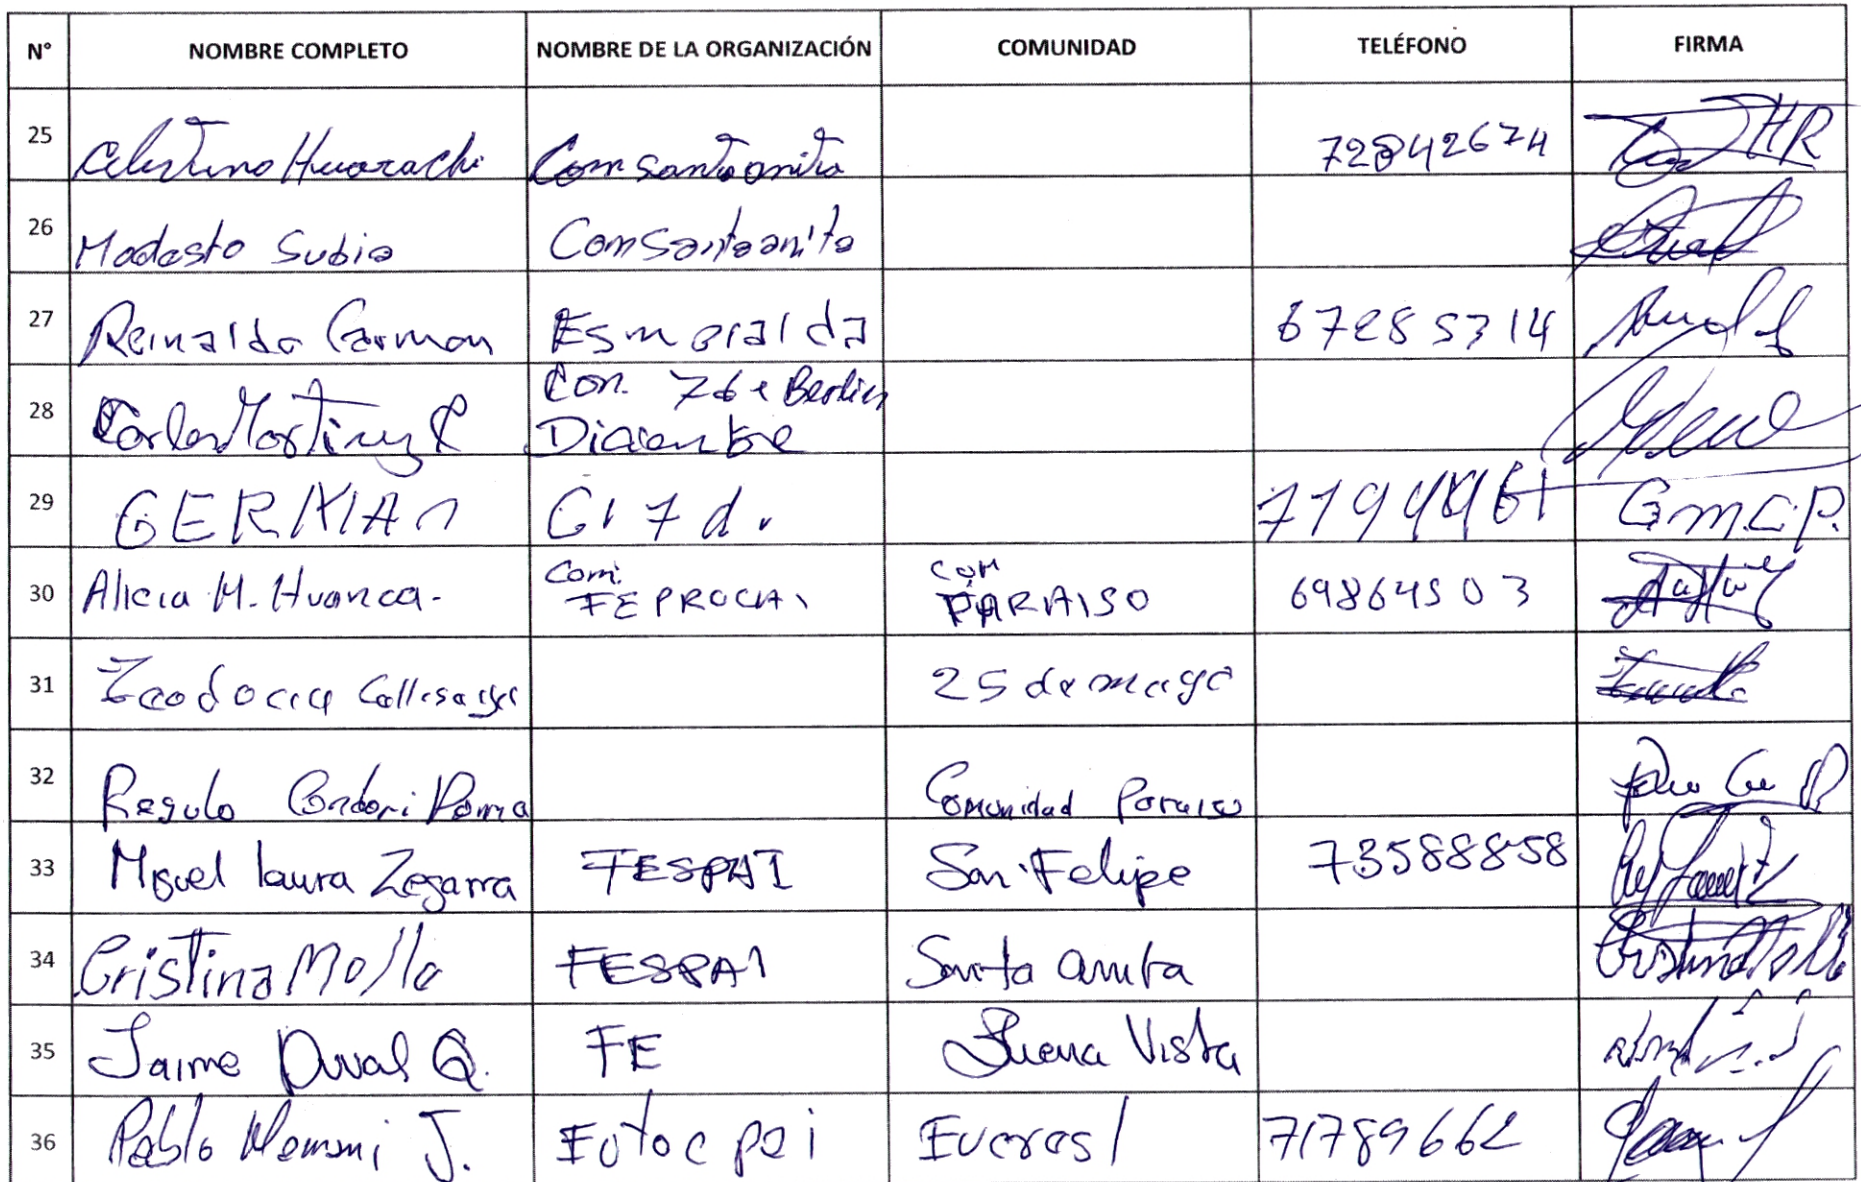 N° NOMBRE COMPLETO NOMBRE DE LA ORGANIZACIÓN COMUNIDAD TELÉFONO FIRMA
25 Celestino Huarachi Com santa anita 72842674 HR
26 Modesto Subia Com Santa anita
27 Reinaldo Carmon Esmeralda 67285314
28 Carlos Martinez Con. 7 de
Diciembre
29 GERMAN C17d. G.M.C.P.
30 Alicia M. Huanca. Com. FEPROCAI COM PARAISO 69864503
31 25 de mayo
32 Regulo Condori Poma Comunidad Paraiso
33 Miguel laura Zegarra FESPAI San Felipe 73588858
34 Cristina Molla FESPAI Santa anita
35 Jaime Q. FE Buena Vista
36 Pablo Mamani J. 71789662